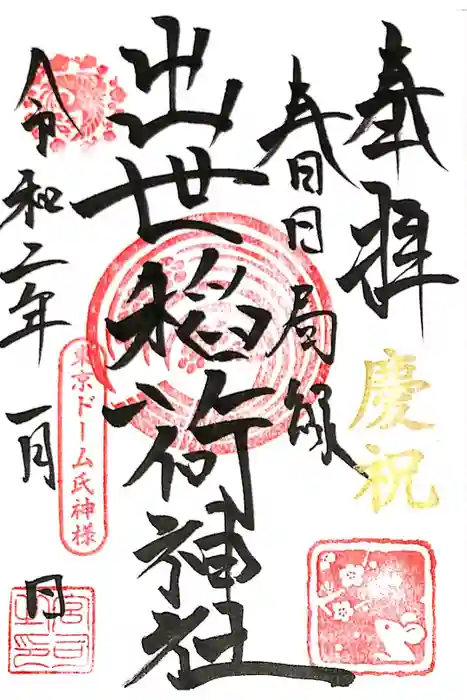 奉拝
慶祝
春日局願
出世稲荷神社
令和二年 一月 日
東京ドーム氏神様